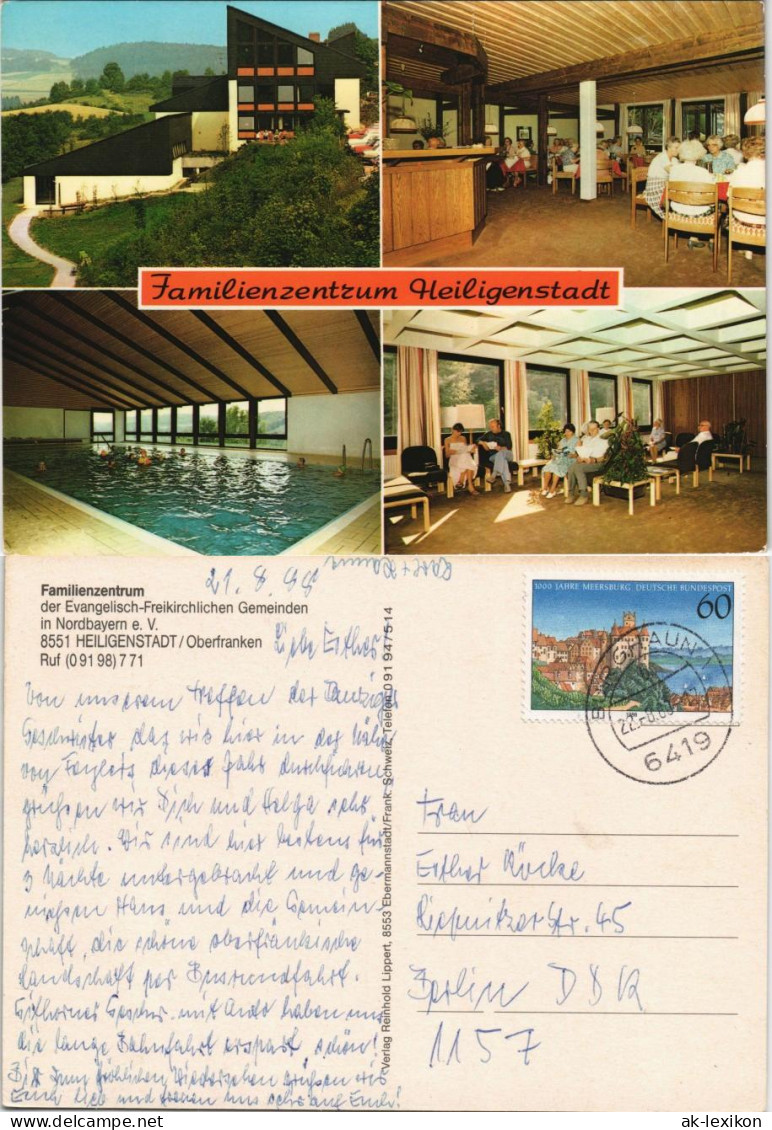 Familienzentrum Heiligenstadt
Familienzentrum
der Evangelisch-Freikirchlichen Gemeinden
in Nordbayern e. V.
8551 HEILIGENSTADT/Oberfranken
Ruf (0 91 98) 7 71
21. 8. 88
Liebe Esther
Von unserem Treffen der
Geschwister das wir hier in der Nähe
von dieses Jahr durchführen
grüßen wir Dich und Helga sehr
herzlich. Wir sind hier bestens für
3 Nächte untergebracht und ge-
nießen Haus und die Gemein-
schaft, die schöne oberfränkische
Landschaft per Busrundfahrt.
mit Auto haben uns
die lange Bahnfahrt erspart schön!
Bis zum fröhlichen Wiedersehen grüßen wir
Euch lieb und freuen uns sehr auf Euch!
Verlag Reinhold Lippert, 8553 Ebermannstadt/Frank. Schweiz, Telefon 0 91 94/75 14
1000 JAHRE MEERSBURG DEUTSCHE BUNDESPOST
60
6419
Frau
Esther
Liegnitzer Str. 45
Berlin DDR
1157
ak-lexikon